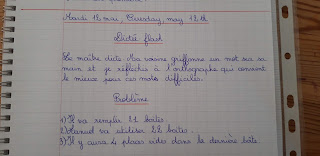 Mardi 12 mai, Tuesday, may 12th
Dictée flash
Le maître dicte. Ma voisine griffonne un mot sur sa
main et je réfléchis à l'orthographe qui convient
le mieux pour ces mots difficiles.
Problème
1) Il va remplir 21 boîtes
2) Manuel va utiliser 22 boîtes.
3) Il y aura 2 places vides dans la dernière boîte.